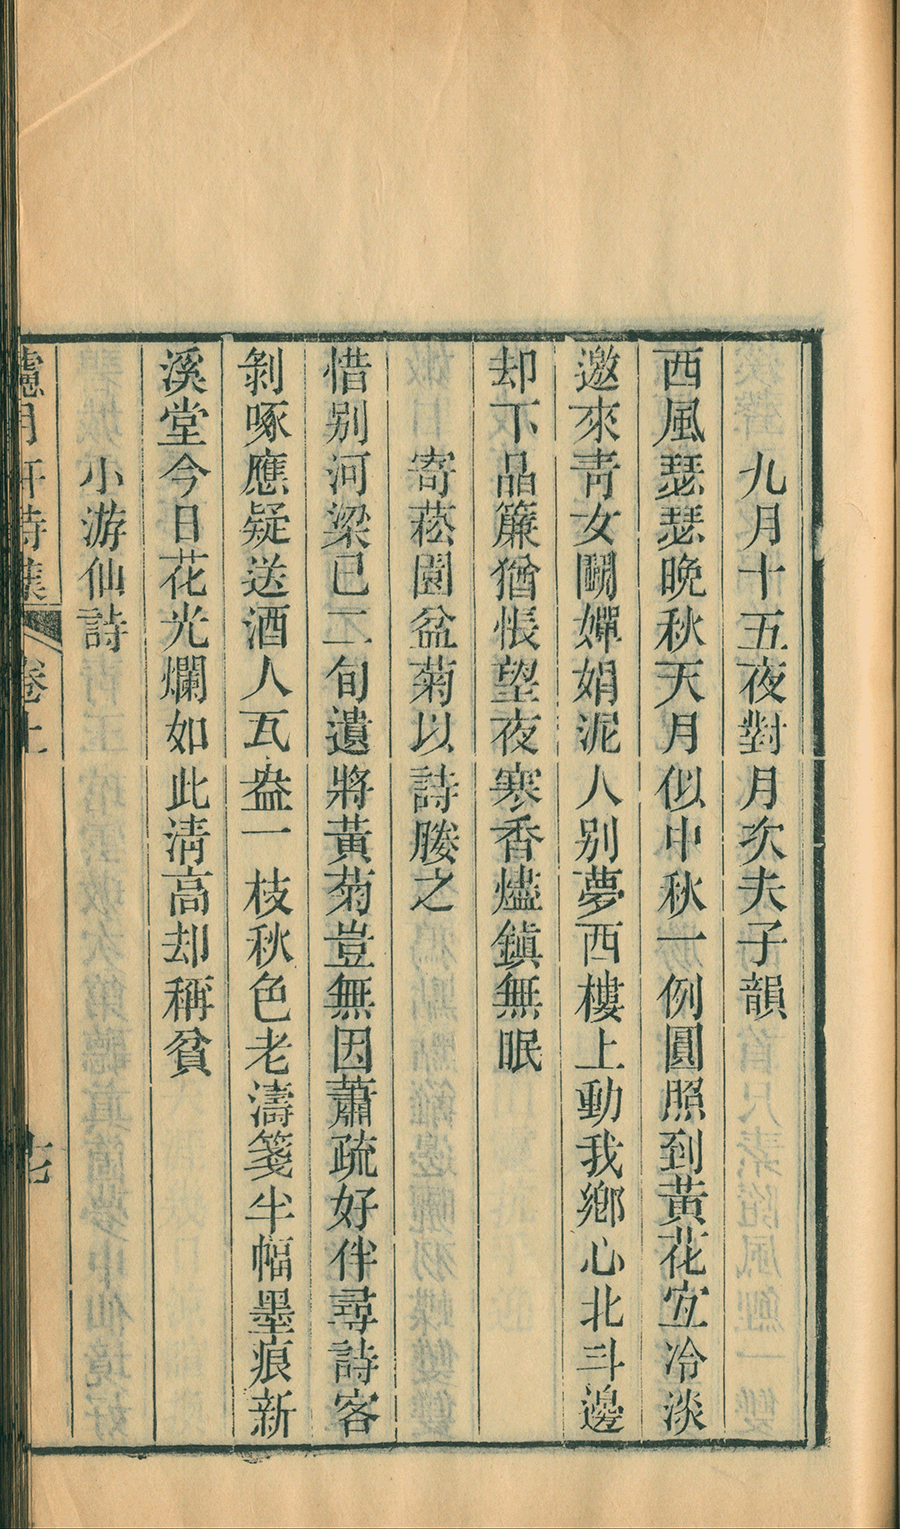 九月十五夜對月次夫子韻
西風瑟瑟晚秋天月似中秋一例圓照到黃花宜冷淡
邀來青女鬭嬋娟泥人別夢西樓上動我鄉心北斗邊
却下晶簾猶悵望夜寒香燼鎮無眠
寄菘園盆菊以詩媵之
惜別河梁已二旬遺將黃菊豈無因蕭疏好伴尋詩客
剝啄應疑送酒人瓦盎一枝秋色老濤箋半幅墨痕新
溪堂今日花光爛如此清高却稱貧
小游仙詩
月軒詩集 卷上 七